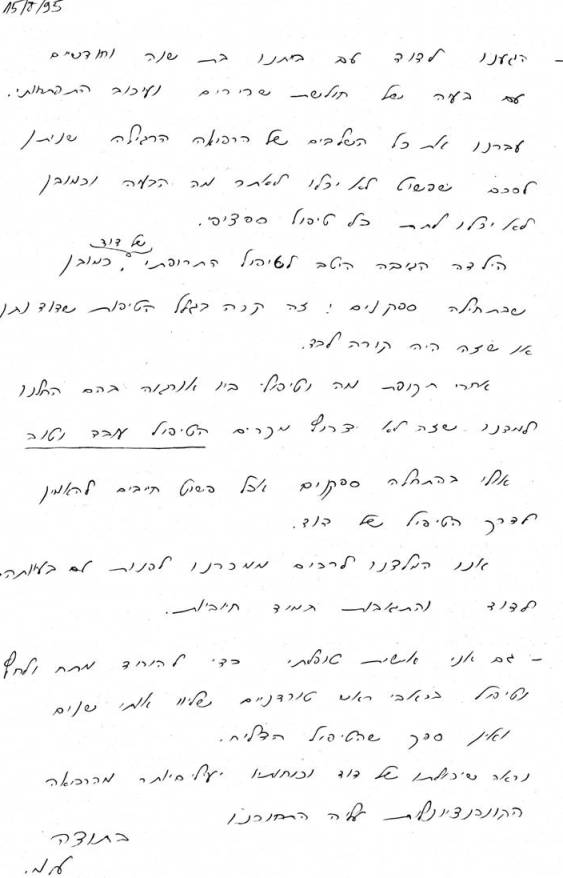 15/8/95
- הגענו לדוד עם ביתנו בת שנה וחודשיים
עם בעיה של חולשת שרירים ועיכוב התפתחותי.
עברנו את כל השלבים של הרפואה הרגילה שניתן
לסכם שפשוט לא יכלו לאתר מה הבעיה וכמובן
לא יכלו לתת כל טיפול ספציפי.
של דוד
הילדה הגיבה היטב לטיפול התרופתי, כמובן
שבתחילה ספקנים ; זה קרה בגלל הטיפות שדוד נתן
או שזה היה קורה לבד.
אחרי תקופת מה וטיפולי ביו אנרגיה בהם החלנו
למדנו שזה לא צרוף מקרים הטיפול עובד וטוב
אולי בהתחלה ספקנים אבל פשוט חייבים להאמין
לדרך הטיפול של דוד.
אנו המלצנו לרבים ממכרנו לפנות עם בעיותהם
לדוד והתגובות תמיד חיוביות.
- גם אני אישית טופלתי כדי להוריד מתח ולחץ
וטיפול בכאבי ראש טורדניים שליוו אותי שנים
ואין ספק שהטיפול הצליח.
נראה שיכולתו של דוד וכוחותיו יעילים יותר מהרפואה
הקונבנציונלית עליה התחנכנו
בתודה
ע.מ.